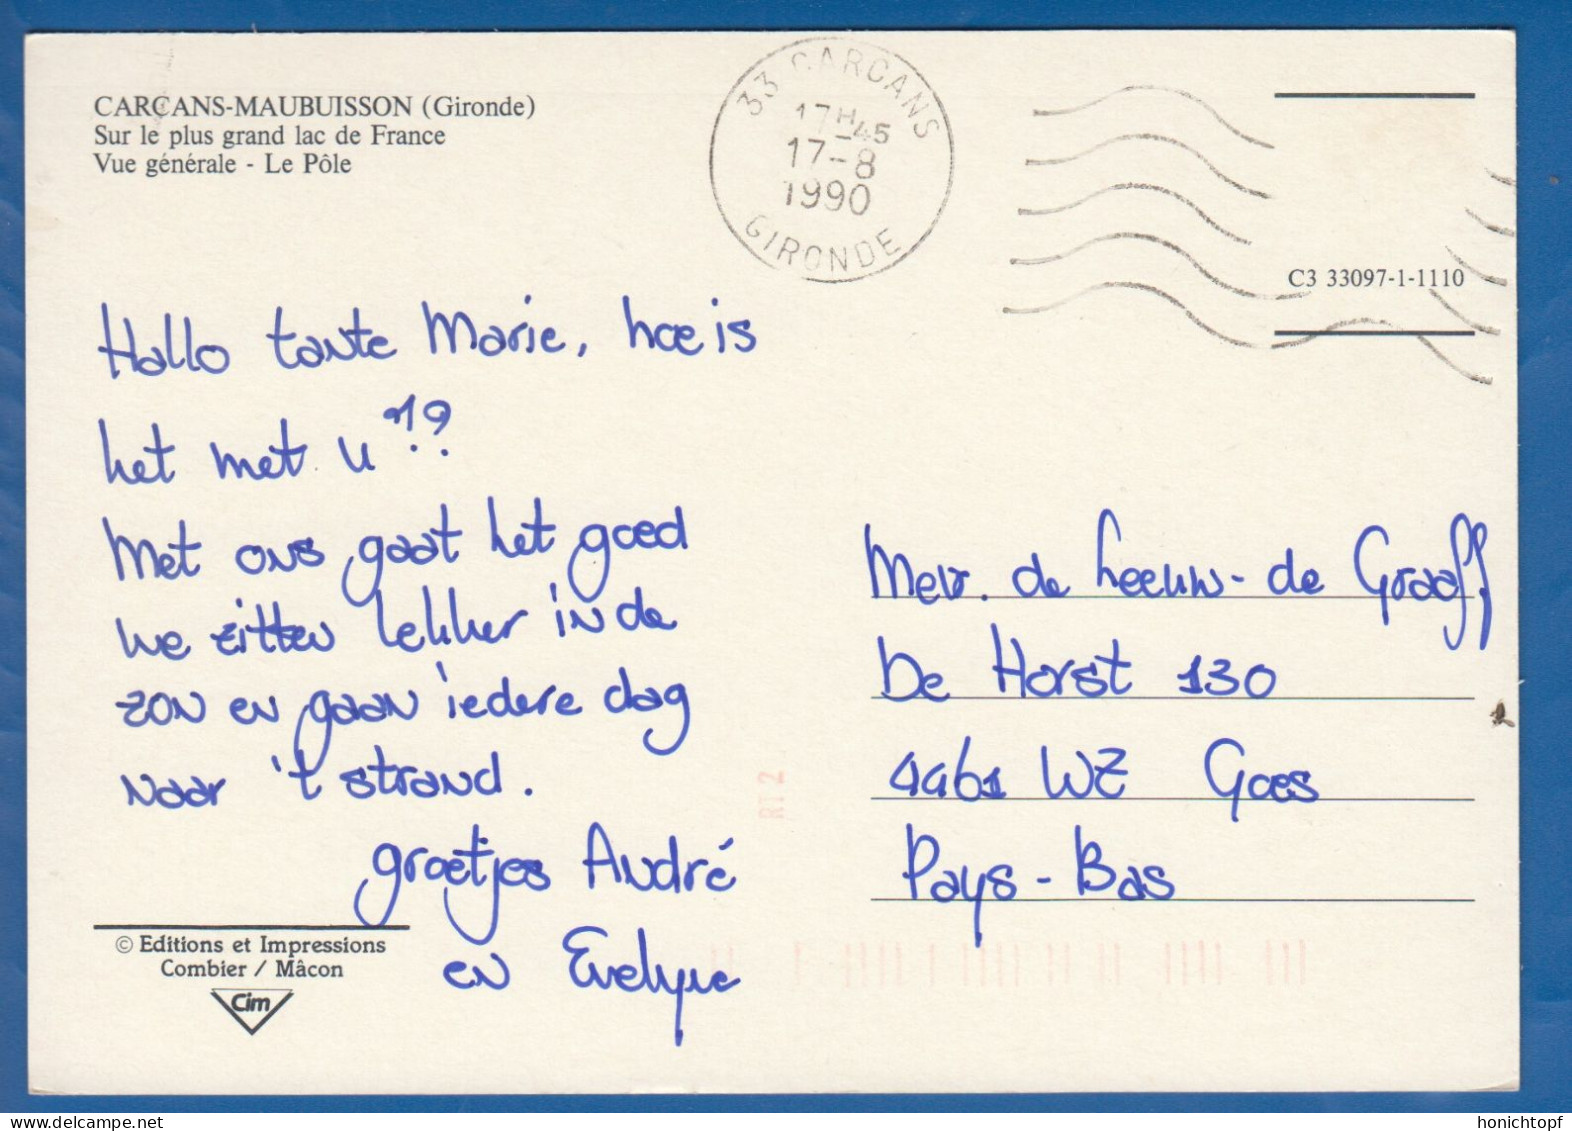 CARCANS-MAUBUISSON (Gironde)
Sur le plus grand lac de France
Vue générale - Le Pôle
33 CARCANS
17H45
17-8
1990
GIRONDE
C3 33097-1-1110
Hallo tante Marie, hoe is
het met u??
Met ons gaat het goed
we zitten lekker in de
zon en gaan iedere dag
naar 't strand.
groetjes André
en Evelyne
Mevr. de Leeuw-de Graaff
De Horst 130
4461 WZ Goes
Pays-Bas
RT 2
© Editions et Impressions
Combier / Mâcon
Cim
delcampe.net
honichtopf